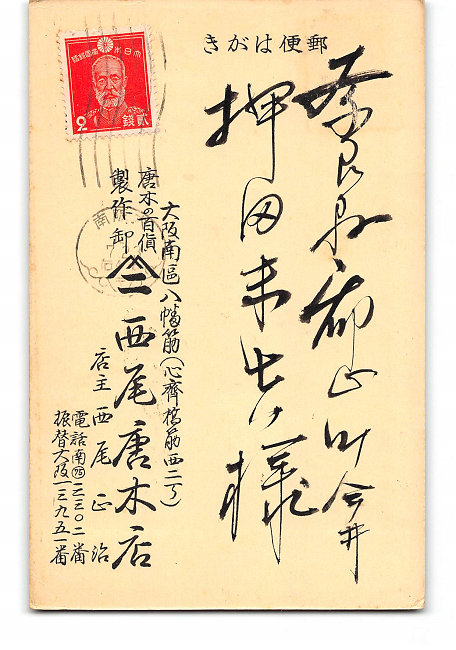 郵便はがき
大日本帝國郵便
貳錢
2
奈良縣郡山町今井
押田末吉様
大阪南區八幡筋(心齊橋筋西二丁)
唐木の百貨
製作卸
西尾唐木店
店主 西尾正治
電話南㊄二三〇二番
振替大阪一三九五一番
南